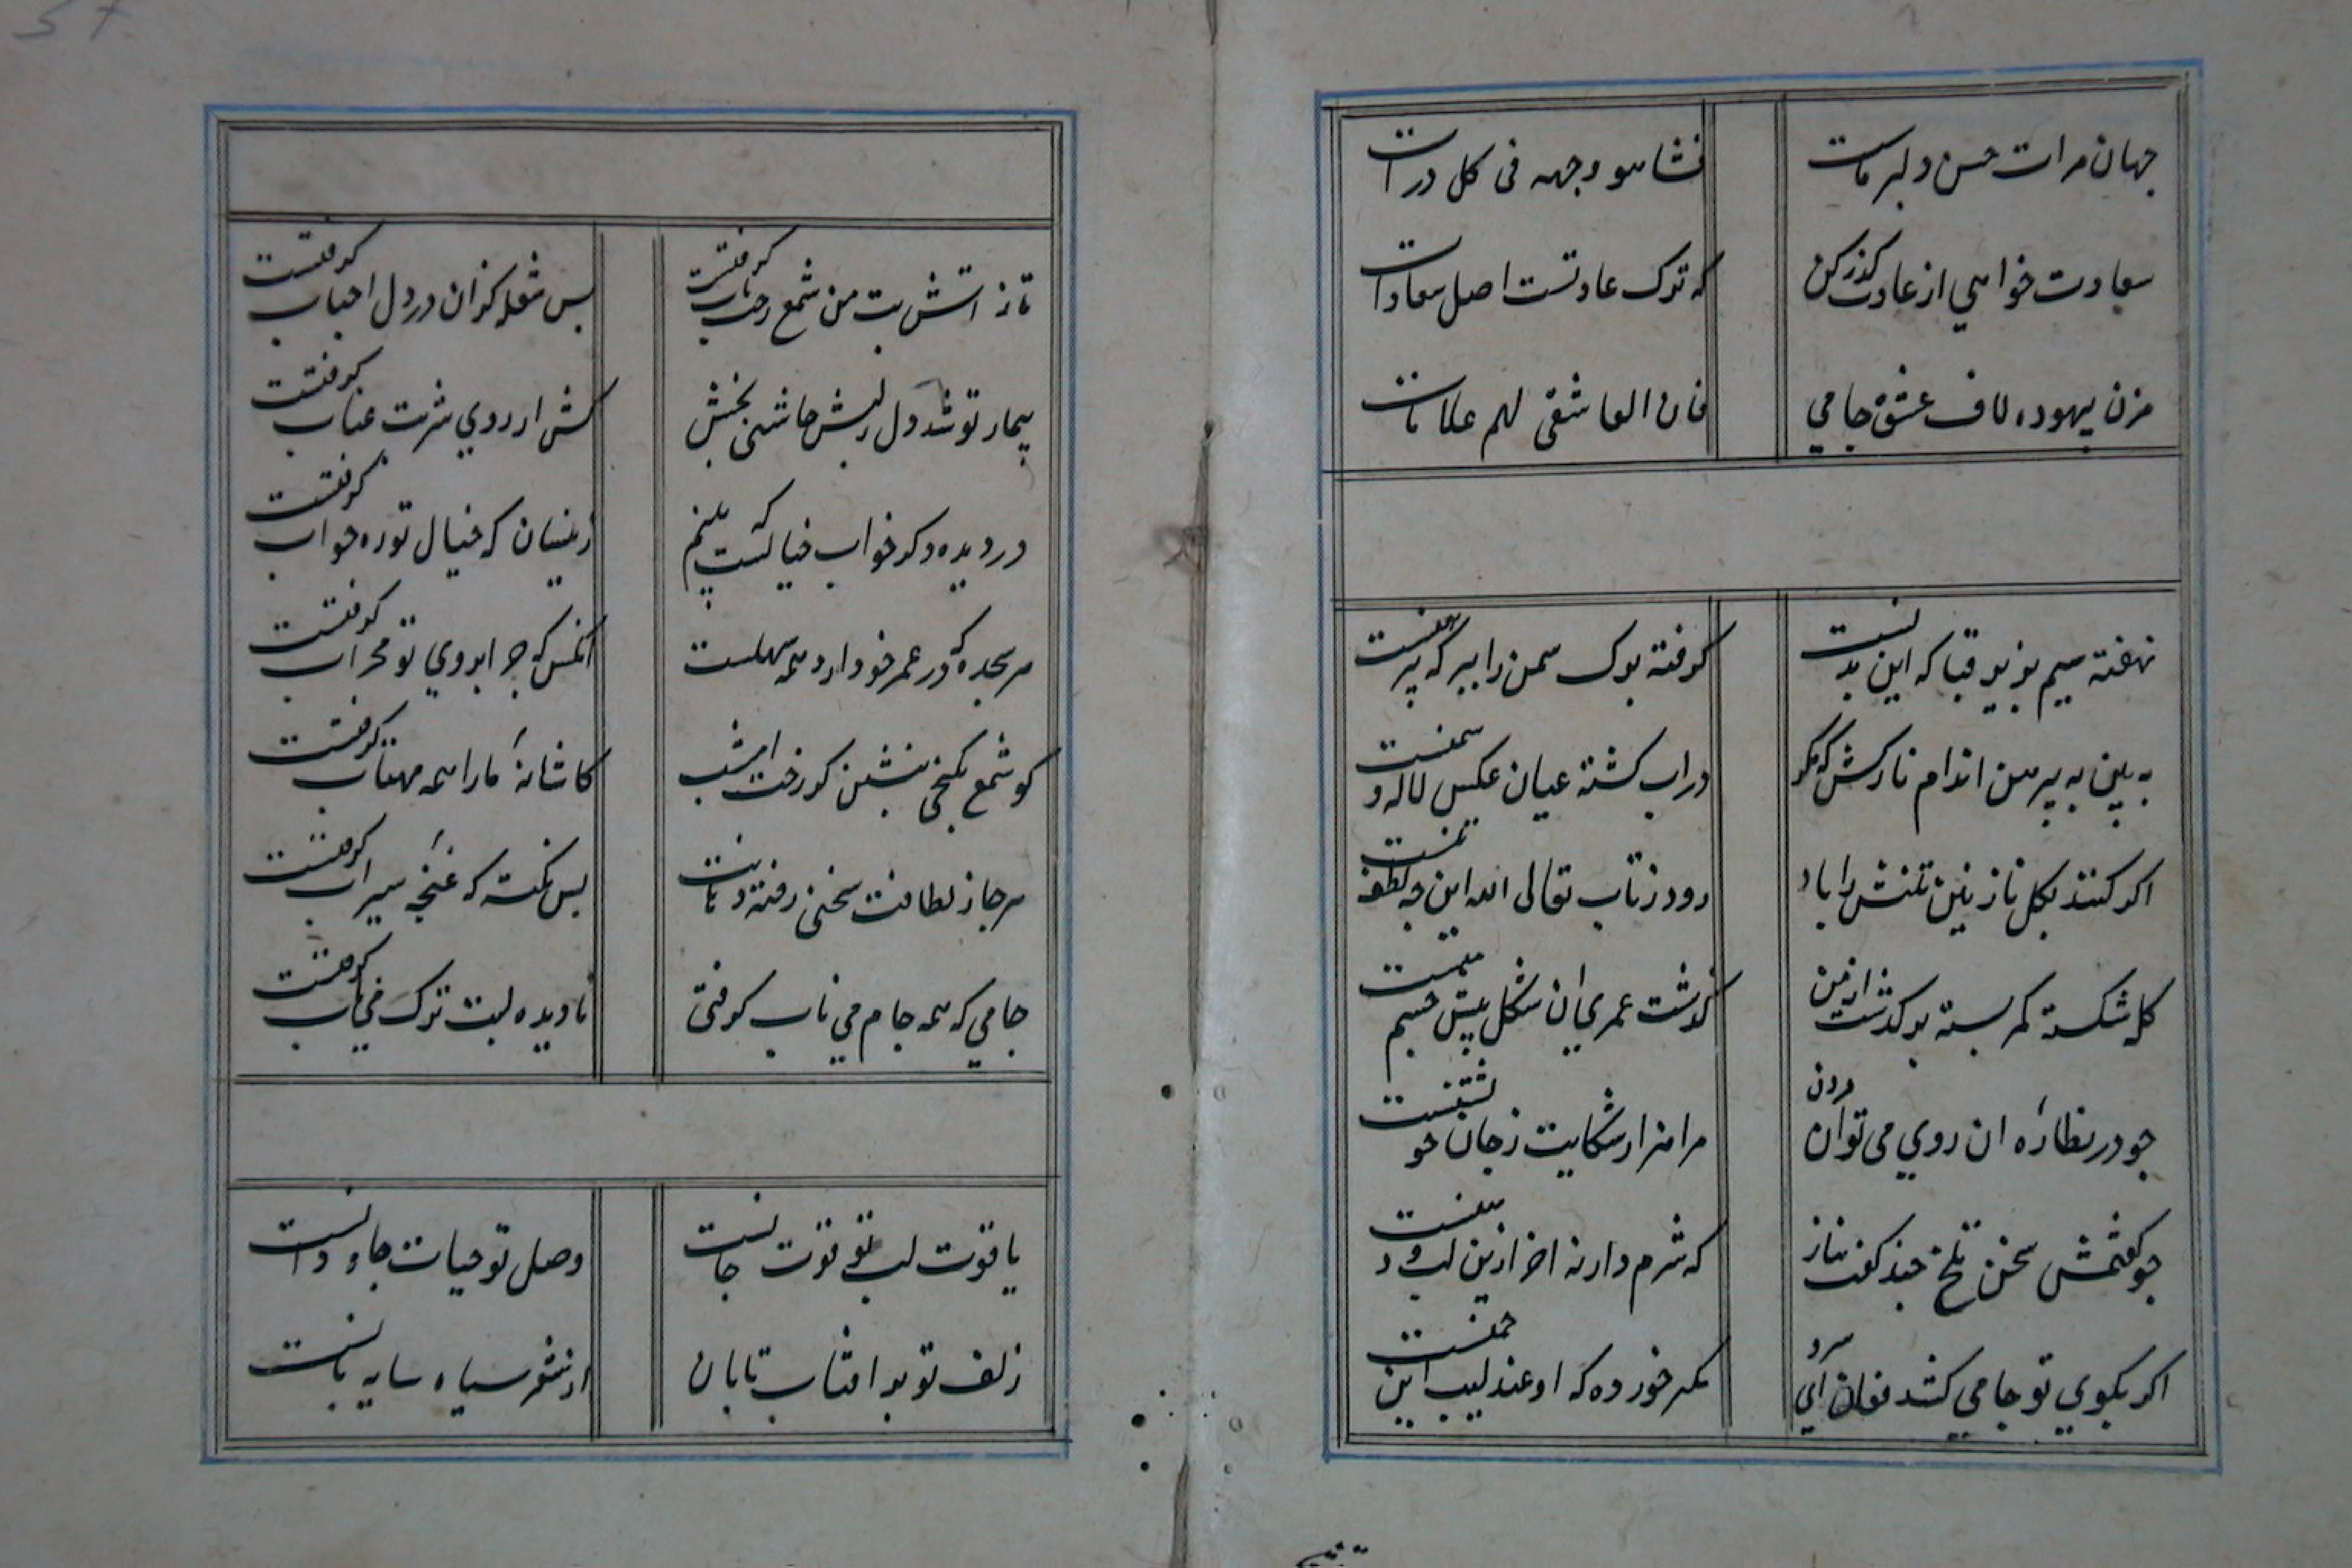 جهان مرات حسن دلبر ماست
فشاهو وجهه فی کل درات
سعادت خواهي از عادت کذر کن
که ترک عادتست اصل سعادات
مزن بیهوده لاف عشق جامي
فان العاشقی لهم علامات
نهفته سیم بزیر قبا که این بدنست
کرفته برک سمن را ببر که پیرهنست
به بین به پیرهن اندام نازکش که مکر
دراب کشته عیان عکس لاله و سمنست
اکر کنند بکل نازنین تنش را باد
رود زتاب تعالی الله این چه لطف تنست
کله شکسته کمر بسته بر کذشت ازمن
کذشت عمری ان شکل پیش چشم منست
چو در نظارۀ ان روي می توان مردن
مرا هزار شکایت زجان خویشتنست
چو کفتمش سخن تلخ چند کفت بناز
که شرم دار نه اخر ازین لب و دهنست
اکر بکوي تو جامي کشد فغان اي سرو
مکیر خورده که او عندلیب این چمنست
تاز اتش تب من شمع رخت تاب کرفتست
بس شعله کزان در دل احباب کرفتست
بیمار تو شد دل زلبش چاشنی بخش
کش ارزوي شربت عناب کرفتست
در دیده دکر خواب خیالست که بینم
زینسان که خیال تو ره خواب کرفتست
هر سجده که در عمر خود ارد همه سهلست
انکس که جز ابروي تو محراب کرفتست
کو شمع بکنجی بنشین کز رخت امشب
کاشانۀ مارا همه مهتاب کرفتست
هر جا ز لطافت سخنی رفته دهانت
بس نکته که غنچۀ سیراب کرفتست
جامي که همه جام می ناب کرفتی
نادیده لبت ترک می ناب کرفتست
یاقوت لب تو قوت جانست
وصل تو حیات جاودانست
زلف تو بر افتاب تابان
از شعر سیاه سایه بانست